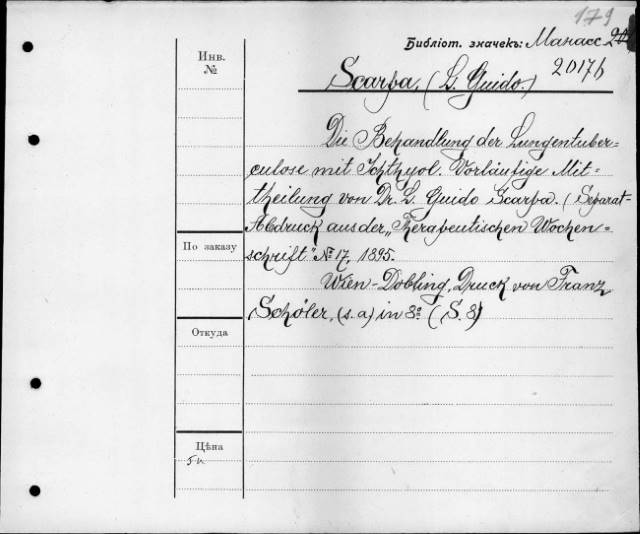 179
Библіот. значекъ: Манасс
20176
Инв.
№
Scarpa, (L. Guido.)
Die Behandlung der Lungentuber=
culose mit Ichthyol. Vorläufige Mit=
theilung von Dr. L. Guido Scarpa. (Separat-
Abdruck aus der „Therapeutischen Wochen=
По заказу
schrift" № 17, 1895.
Wien-Döbling, Druck von Franz
Schöler, (s. a) in 8º (S. 8)
Откуда
Цѣна